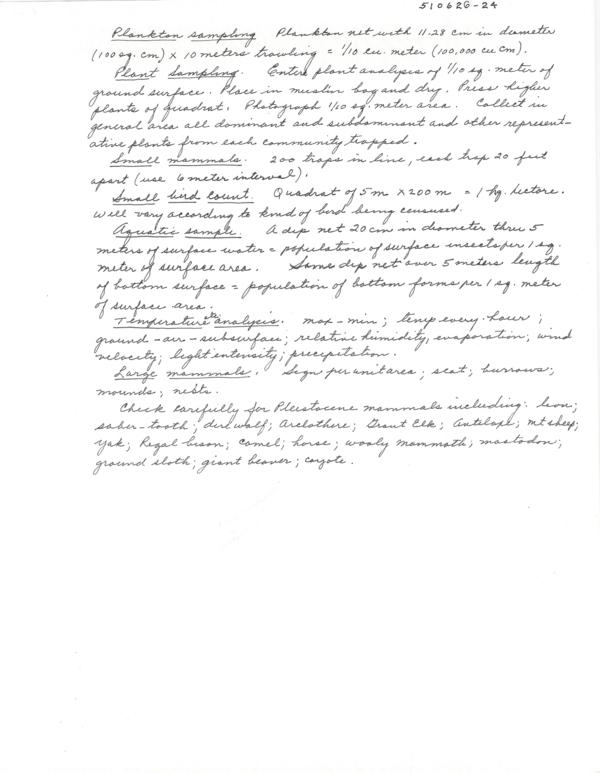 510626-24
Plankton sampling Plankton net with 11.28 cm in diameter
(100 sq. cm) x 10 meters trawling = 1/10 cu. meter (100,000 cu cm).
Plant Sampling. Entire plant analysis of 1/10 sq. meter of
ground surface. Place in muslin bag and dry. Press higher
plants of quadrat. Photograph 1/10 sq. meter area. Collect in
general area all dominant and subdominant and other represent-
ative plants from each community trapped.
Small mammals. 200 traps in line, each trap 20 feet
apart (use 6 meter interval).
Small bird count. Quadrat of 5 m x 200 m = 1 hectore.
Will vary according to kind of bird being censused.
Aquatic sample. A dip net 20 cm in diameter thru 5
meters of surface water = population of surface insects per 1 sq.
meter of surface area. Same dip net over 5 meters length
of bottom surface = population of bottom forms per 1 sq. meter
of surface area.
Temperature etc analysis. max-min; temp every hour;
ground-air-subsurface; relative humidity, evaporation; wind
velocity; light intensity; precipitation.
Large mammals. Sign per unit area; scat; burrows;
mounds; nests.
Check carefully for Pleistocene mammals including: lion;
saber-tooth; dire wolf; Arclothere; Giant Elk; Antelope; mt sheep;
Yak; Regal bison; Camel; horse; wooly mammoth; mastodon;
ground sloth; giant beaver; coyote.